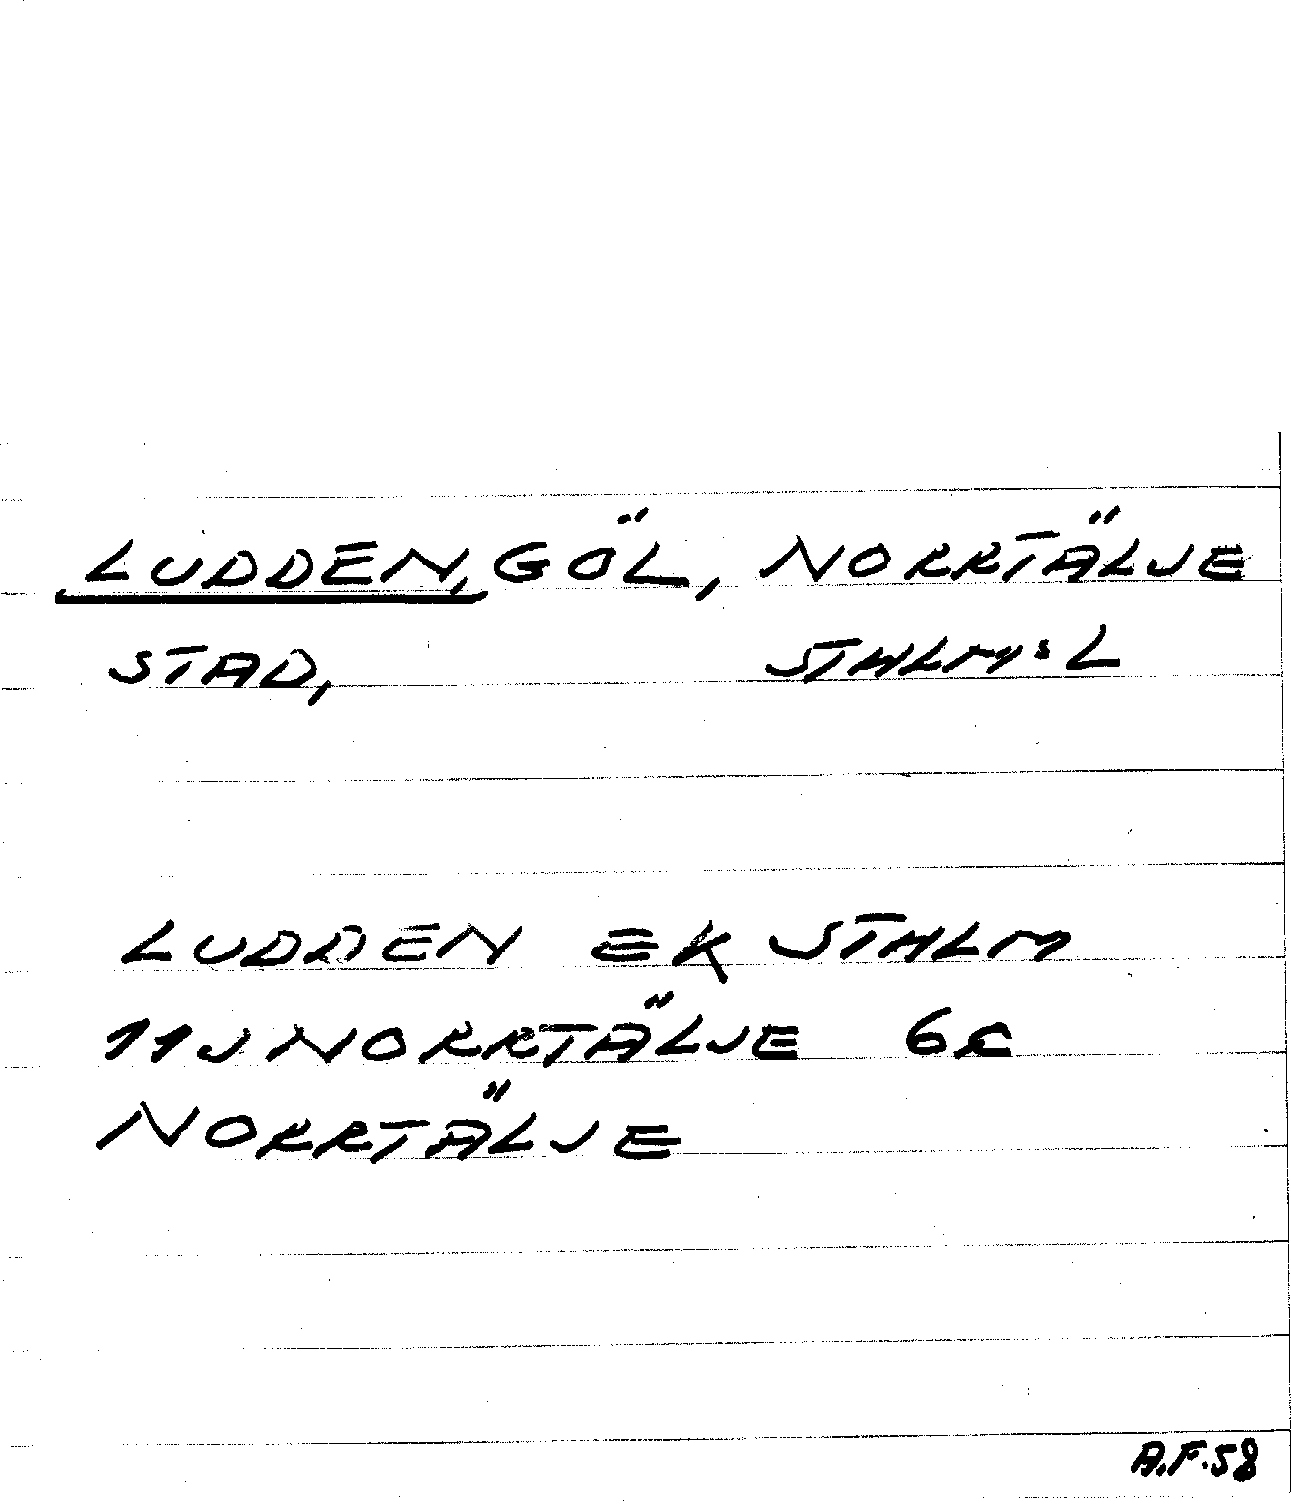 LUDDEN, GÖL, NORRTÄLJE
STAD, STHLM:S L
LUDDEN EK STHLM
11J NORRTÄLJE 6c
NORRTÄLJE
A.F.58